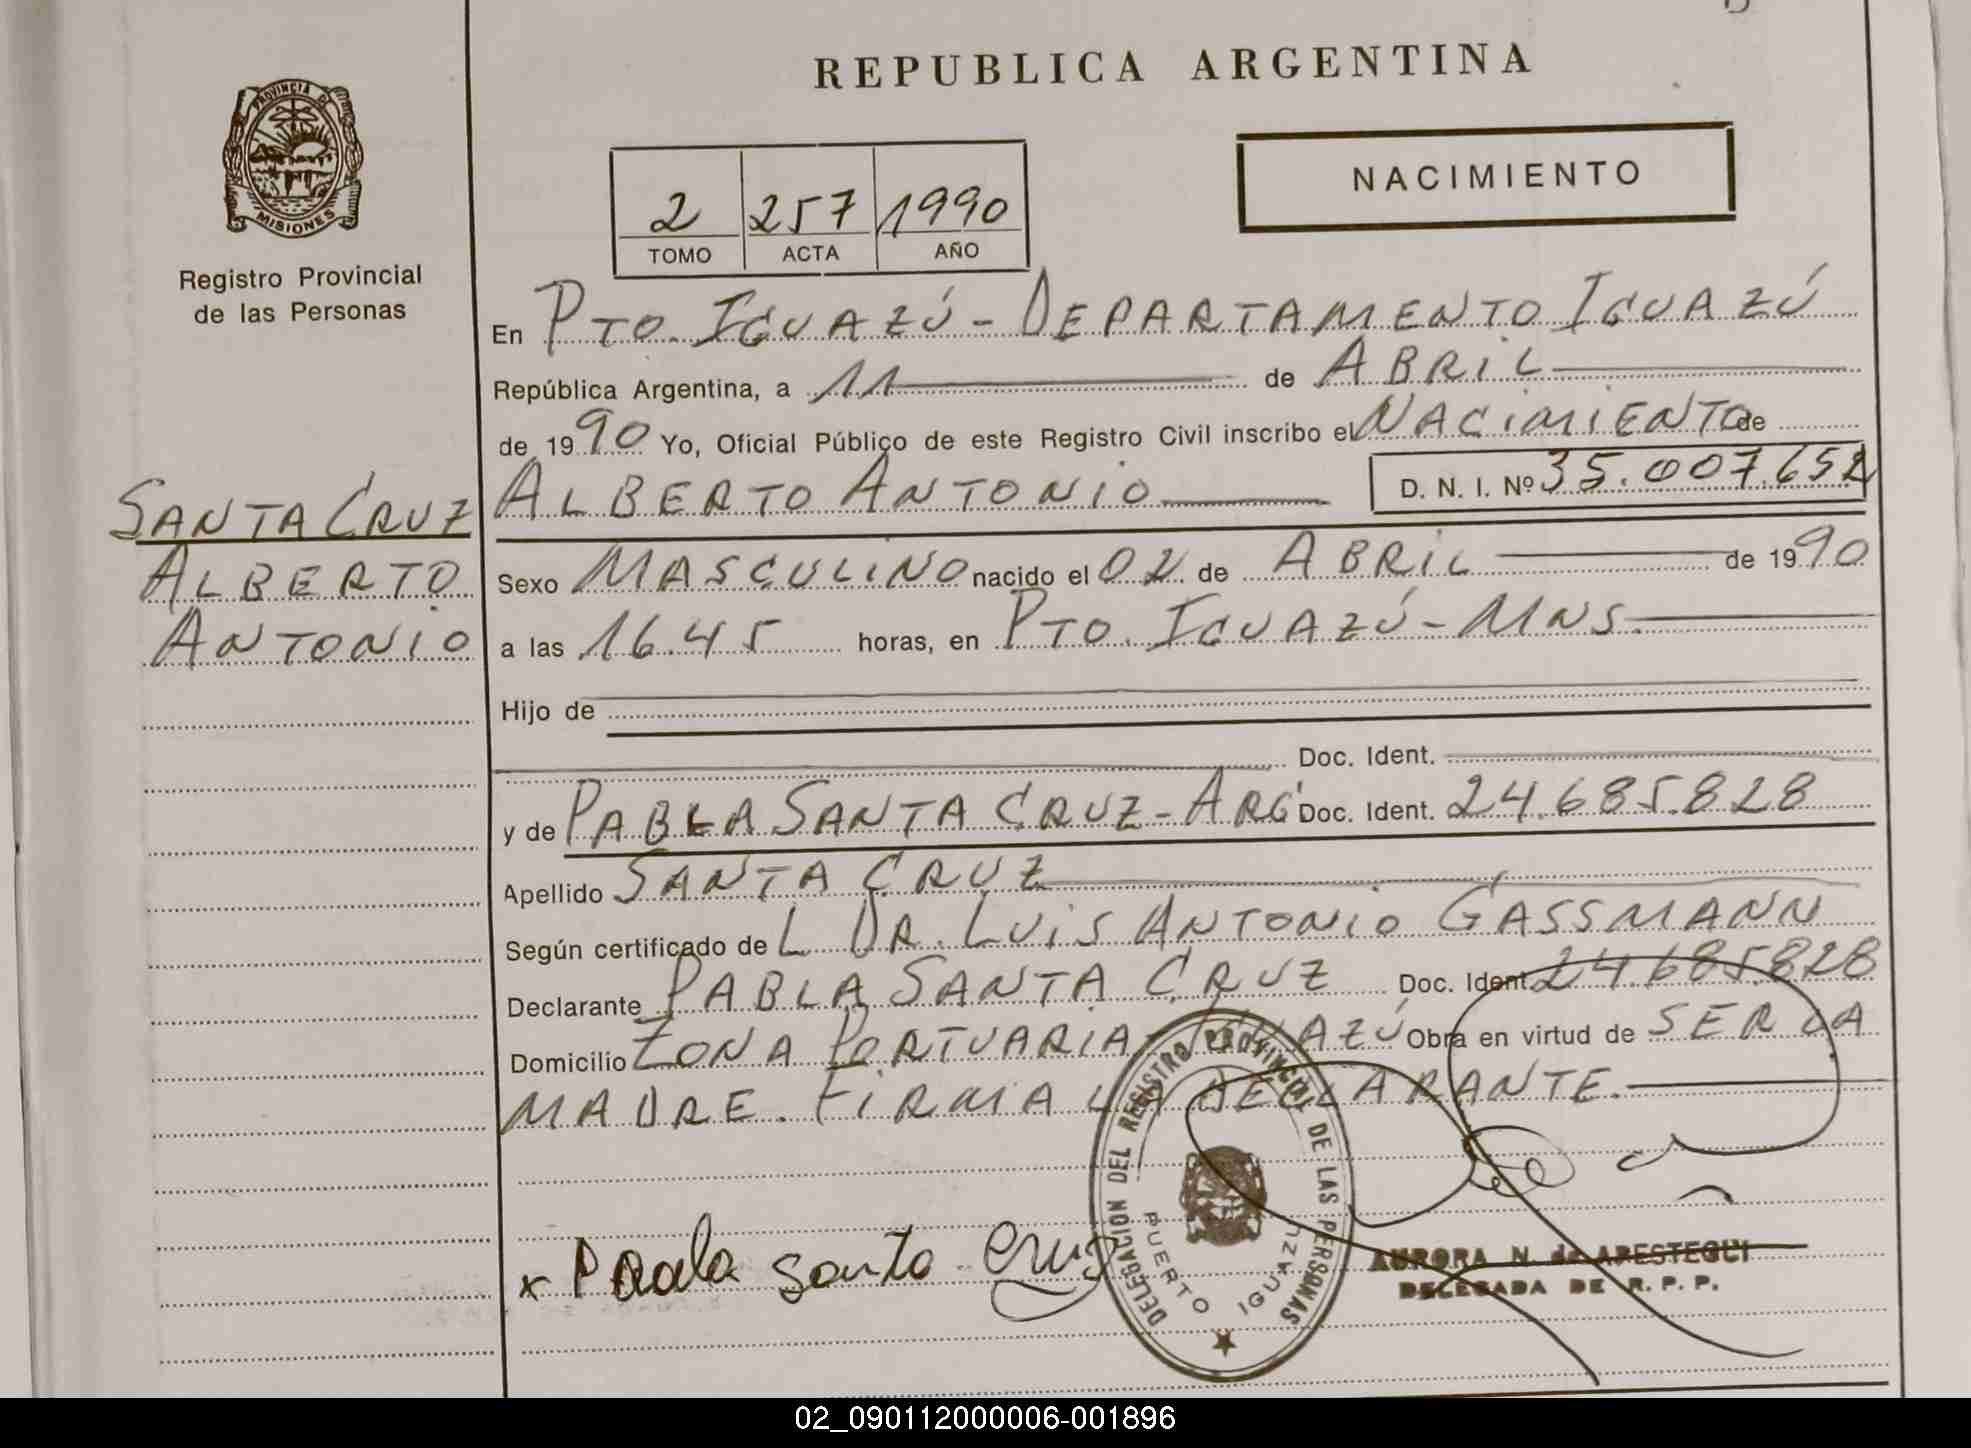 REPUBLICA ARGENTINA
PROVINCIA D MISIONES
Registro Provincial
de las Personas
NACIMIENTO
2 257 1990
TOMO ACTA AÑO
En PTO. IGUAZÚ - DEPARTAMENTO IGUAZÚ
República Argentina, a 11 de ABRIL
de 1990 Yo, Oficial Público de este Registro Civil inscribo el NACIMIENTO de
SANTA CRUZ
ALBERTO
ANTONIO
ALBERTO ANTONIO D. N. I. Nº 35.007.652
Sexo MASCULINO nacido el 02 de ABRIL de 1990
a las 16.45 horas, en PTO. IGUAZÚ - MNS.
Hijo de
Doc. Ident.
y de PABLA SANTA CRUZ - ARG. Doc. Ident. 24.685.828
Apellido SANTA CRUZ
Según certificado de L DR. LUIS ANTONIO GASSMANN
Declarante PABLA SANTA CRUZ Doc. Ident. 24.685.828
Domicilio ZONA PORTUARIA - IGUAZÚ Obra en virtud de SER LA
MADRE. FIRMA LA DECLARANTE.
DELEGACION DEL REGISTRO PROVINCIAL DE LAS PERSONAS
PUERTO IGUAZU
x Pabla santa Cruz
AURORA N. de ARESTEGUI
DELEGADA DE R. P. P.
02_090112000006-001896